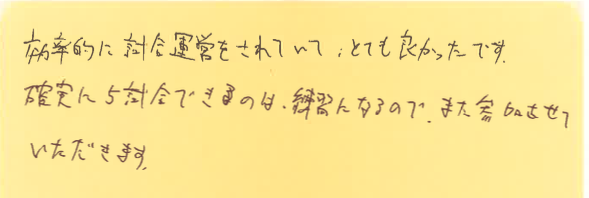 効率的に試合運営をされていて、とても良かったです。
確実に5試合できるのは、練習になるので、また参加させて
いただきます。